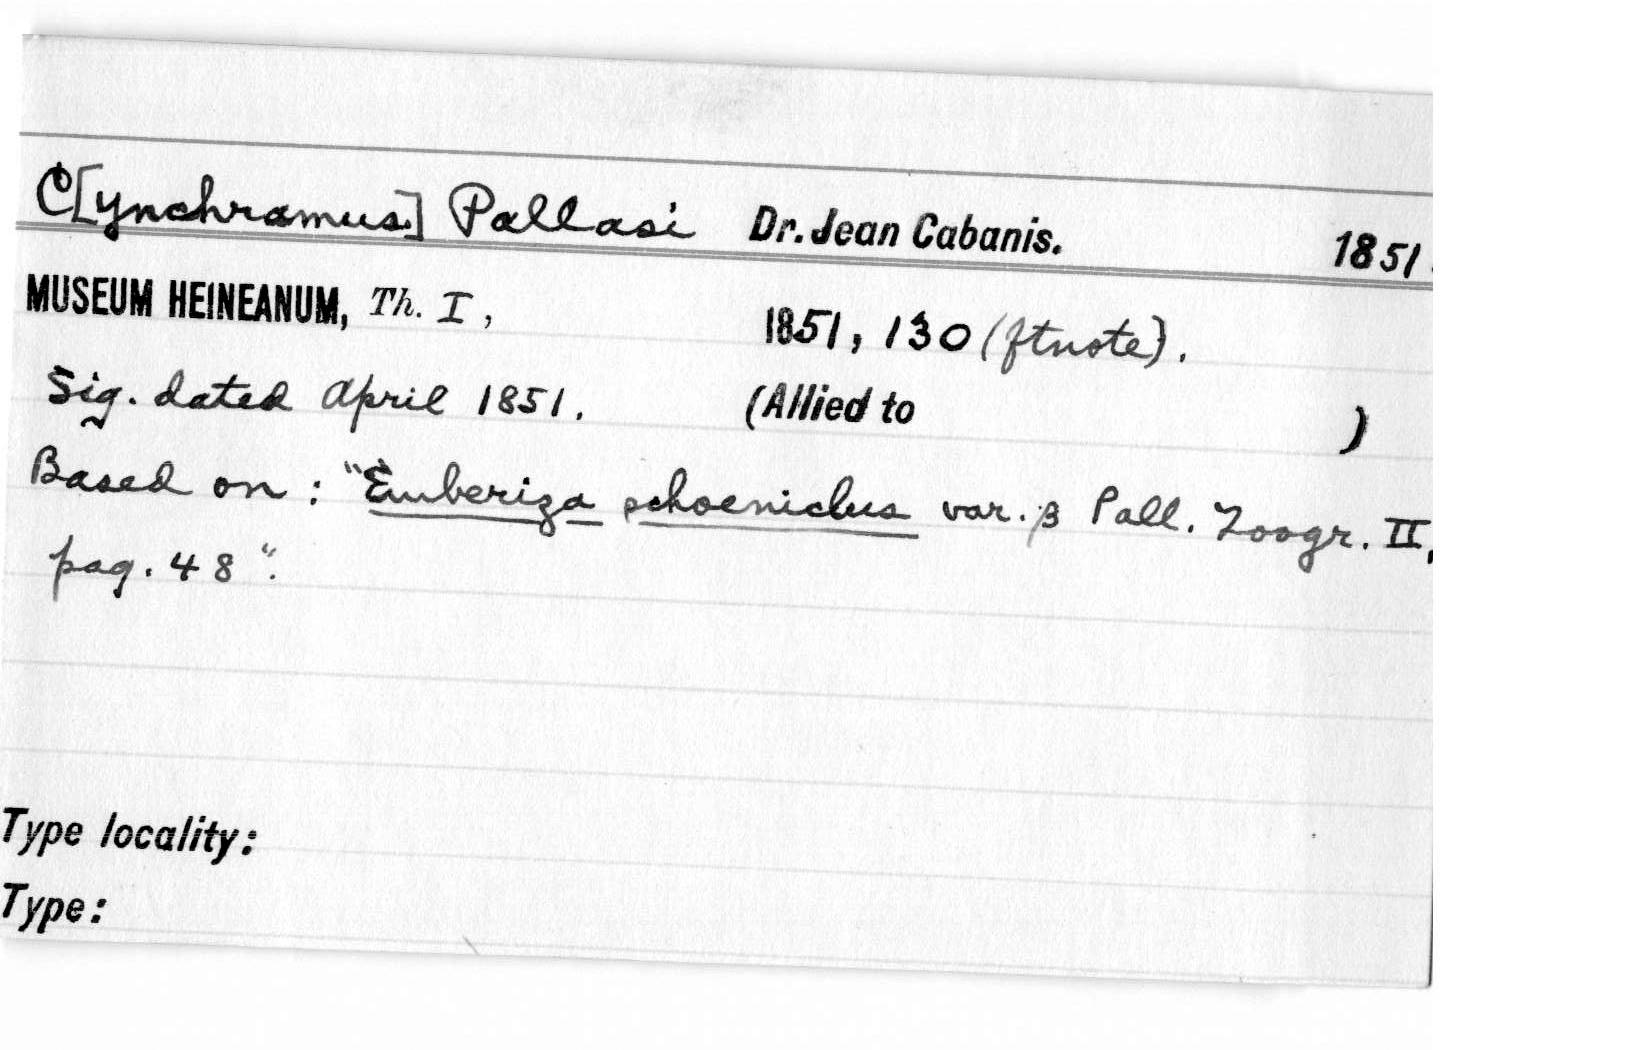 C[ynchramus] Pallasi Dr. Jean Cabanis. 1851.
MUSEUM HEINEANUM, Th. I, 1851, 130 (ftnote).
Sig. dated April 1851. (Allied to )
Based on: "Emberiza schoeniclus var. β Pall. Zoogr. II,
pag. 48".
Type locality:
Type: